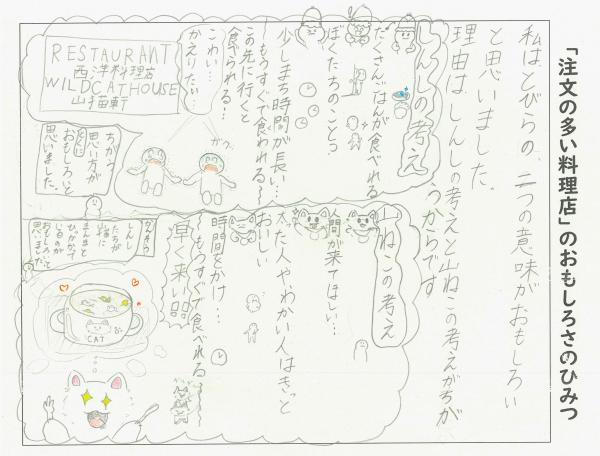 「注文の多い料理店」のおもしろさのひみつ
私はとびらの、二つの意味がおもしろい
と思いました。
理由は、しんしの考えと山ねこの考えがちが
うからです
しんしの考え
たくさんごはんが食べれる
ぼくたちのことう
少しまち時間が長い…
もうすぐで食われる〜
この先に行くと
食べられる…
こわい…
かえりたい…
ガク
RESTAURANT
西洋料理店
WILDCATHOUSE
山猫軒
ちがう
思い方が
とくに
おもしろいと
思いました。
山ねこの考え
人間が来てほしい…
太った人や、わかい人はきっと
おいしい
時間をかけ…
もうすぐで食べれる〜
早く来い
しんし
たちが
まんまと
ひっかかって
いるのが
おもしろいと
思いました
CAT